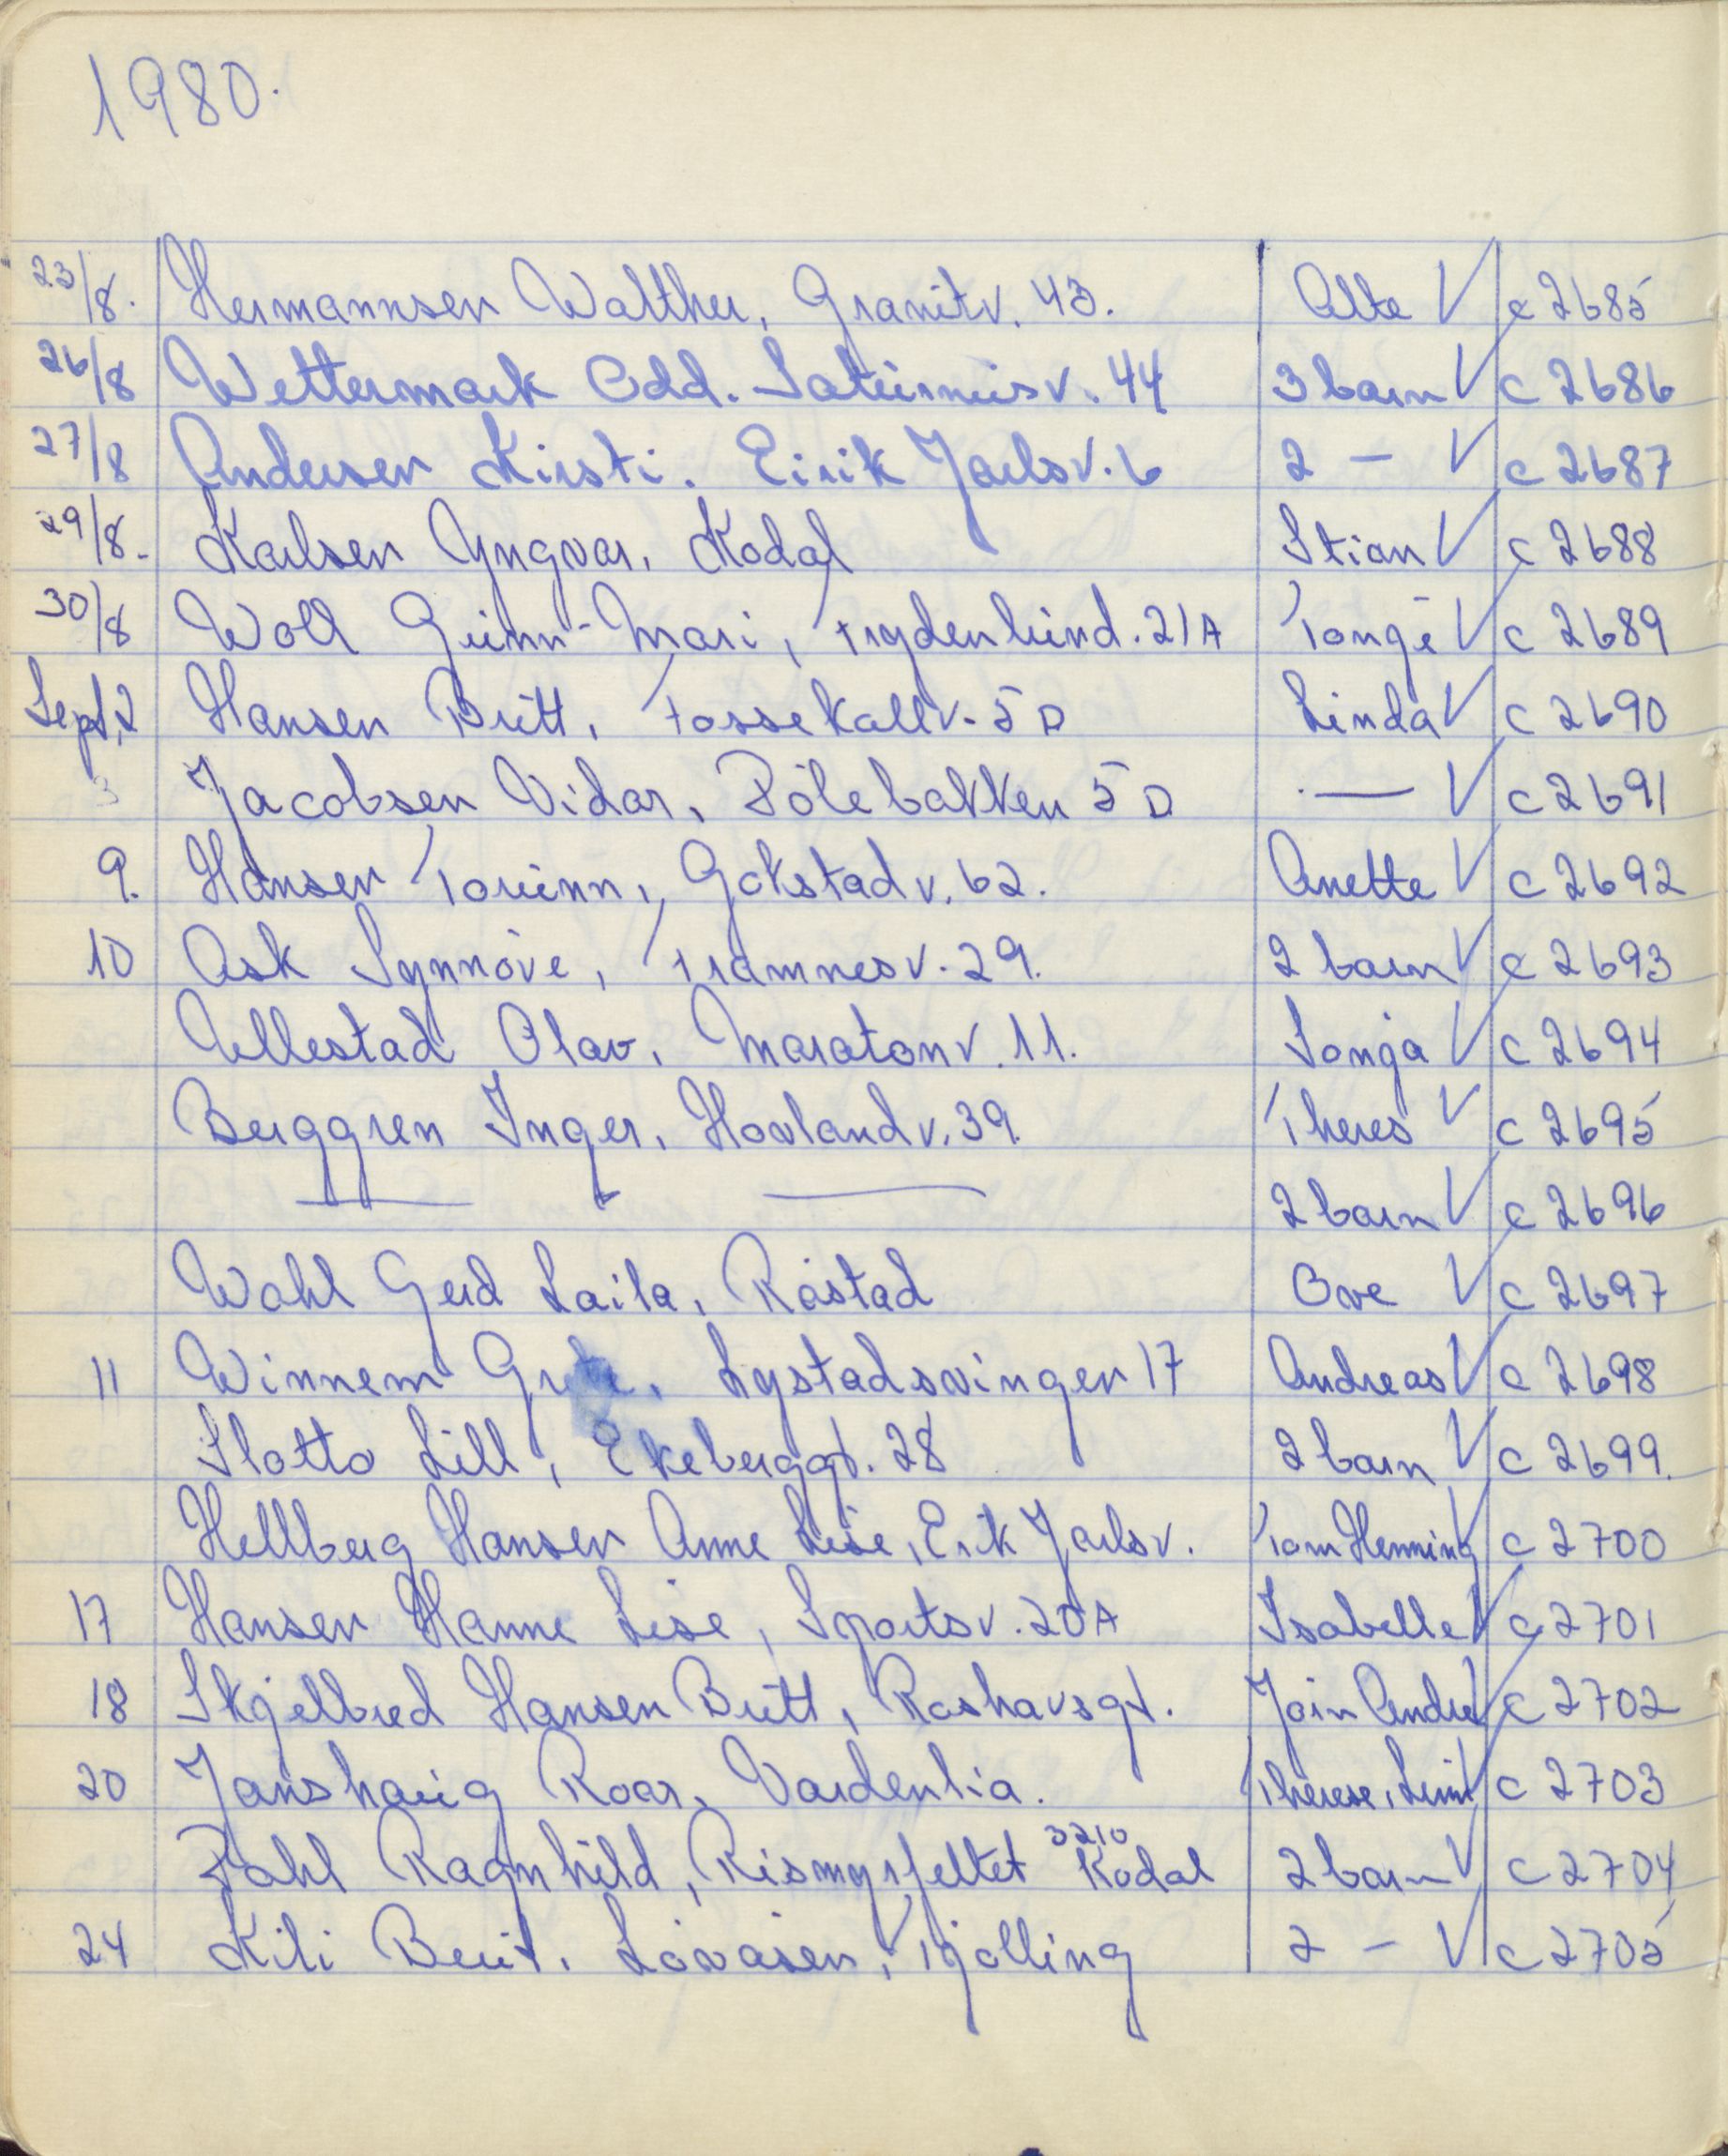 1980.
23/8. Hermannsen Walther, Granitv. 43. Atte V c 2685
26/8 Wettermark Odd. Saturnusv. 44 3 barn V c 2686
27/8 Andersen Kirsti. Eirik Jarlsv. 6 2 - V c 2687
29/8. Karlsen Yngvar, Kodal Stian V c 2688
30/8 Woll Gunn-Mari, Frydenlund. 21A Tonge V c 2689
Sept. 2 Hansen Britt, Fossekallv. 5 D Linda V c 2690
3 Jacobsen Vidar, Pölebakken 5 D — V c 2691
9. Hansen Torunn, Gokstadv. 62. Anette V c 2692
10 Ask Synnöve, Framnesv. 29. 2 barn V c 2693
Ullestad Olav, Maratonv. 11. Sonja V c 2694
Berggren Inger, Hovlandv. 39. Theres V c 2695
— — 2 barn V c 2696
Wahl Gerd Laila, Råstad Ove V c 2697
11 Winnem Grete, Lystadsvingen 17 Andreas V c 2698
Slotto Lill, Ekeberggt. 28 2 barn V c 2699.
Hellberg Hansen Anne Lise, Erik Jarlsv. Tom Henning V c 2700
17 Hansen Hanne Lise, Sportsv. 20A Isabelle V c 2701
18 Skjelbred Hansen Britt, Roshavsgt. Join André V c 2702
20 Janshaug Roar, Vardenlia. Therese, Linn V c 2703
Dahl Ragnhild, Rismyrfeltet 3210 Kodal 2 barn V c 2704
24 Kili Berit. Lövåsen, Tjölling 2 - V c 2705